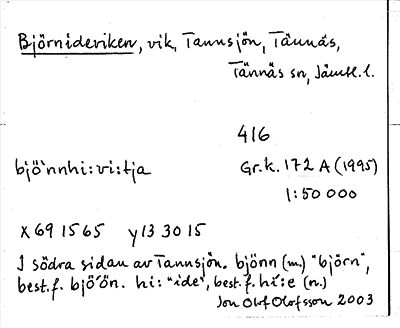 Björnideviken, vik, Tannsjön, Tännäs,
Tännäs sn, Jämtl. l.
416
bjö`nnhi:vi:tja
Gr.k. 172 A (1995)
1:50 000
x 69 15 65 y 13 30 15
I södra sidan av Tannsjön. bjönn (m.) "björn",
best.f. bjö´ön. hi: "ide", best.f. hi´:e (n.)
Jon Olof Olofsson 2003